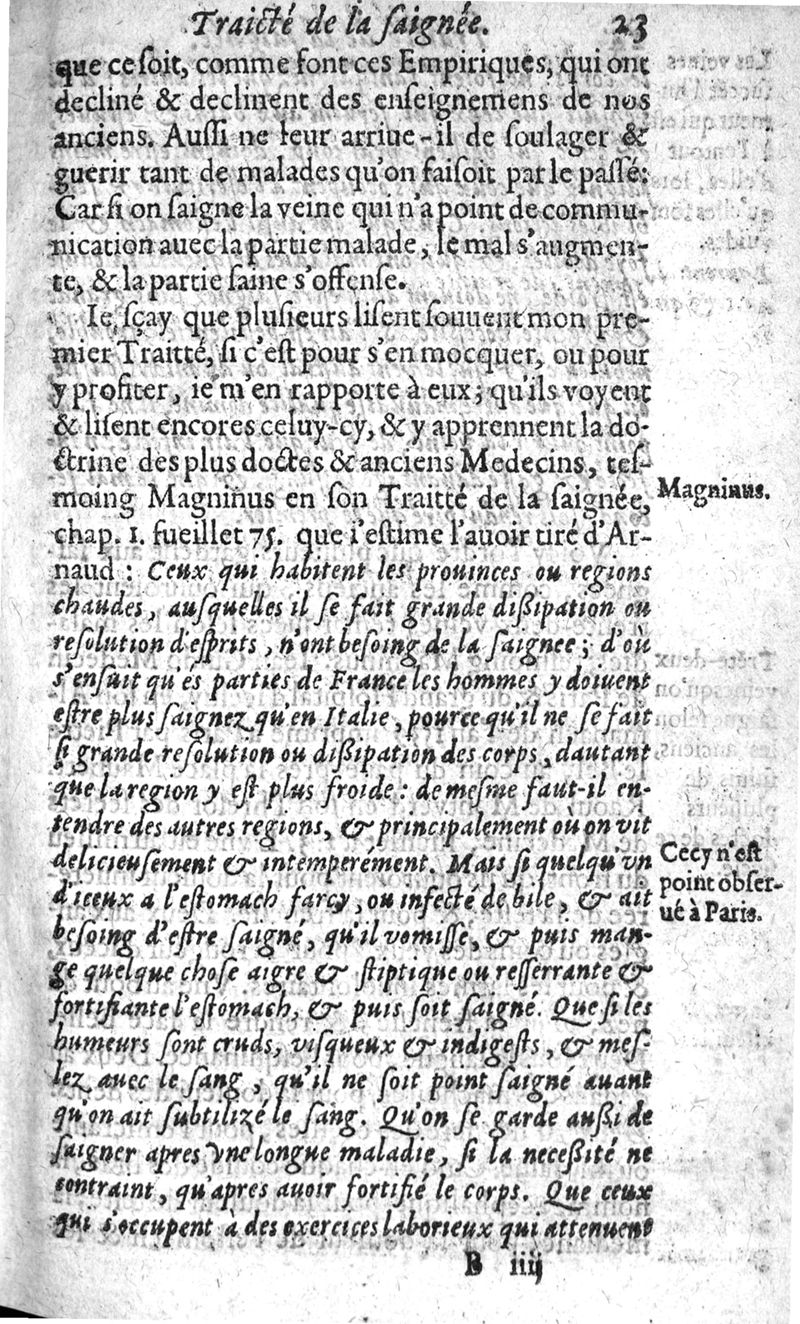 Traicté de la ſaignée. 23
que ce ſoit, comme font ces Empiriques, qui ont
decliné & declinent des enſeignemens de nos
anciens. Auſſi ne leur arriue-il de ſoulager &
guerir tant de malades qu'on faiſoit par le paſſé:
Car ſi on ſaigne la veine qui n'a point de commu-
nication auec la partie malade, le mal s'augmen-
te, & la partie ſaine s'offenſe.
Ie ſçay que pluſieurs liſent ſouuent mon pre-
mier Traitté, ſi c'eſt pour s'en mocquer, ou pour
y profiter, ie m'en rapporte à eux; qu'ils voyent
& liſent encores celuy-cy, & y apprennent la do-
ctrine des plus doctes & anciens Medecins, teſ-
moing Magninus en ſon Traitté de la ſaignée,
Magninus.
chap. 1. fueillet 75. que i'eſtime l'auoir tiré d'Ar-
naud : Ceux qui habitent les prouinces ou regions
chaudes, auſquelles il ſe fait grande diſſipation ou
reſolution d'eſprits, n'ont beſoing de la ſaignee; d'où
s'enſuit qu'és parties de France les hommes y doiuent
eſtre plus ſaignez qu'en Italie, pource qu'il ne ſe fait
ſi grande reſolution ou diſſipation des corps, dautant
que la region y eſt plus froide : de meſme faut-il en-
tendre des autres regions, & principalement où on vit
delicieuſement & intemperément. Mais ſi quelqu'vn
d'iceux a l'eſtomach farcy, ou infecté de bile, & ait
beſoing d'eſtre ſaigné, qu'il vomiſſe, & puis man-
Cecy n'eſt
point obſer-
ué à Paris.
ge quelque choſe aigre & ſtiptique ou reſſerrante &
fortifiante l'eſtomach, & puis ſoit ſaigné. Que ſi les
humeurs ſont cruds, viſqueux & indigeſts, & meſ-
lez auec le ſang, qu'il ne ſoit point ſaigné auant
qu'on ait ſubtilizé le ſang. Qu'on ſe garde auſſi de
ſaigner apres vne longue maladie, ſi la neceſſité ne
contraint, qu'apres auoir fortifié le corps. Que ceux
qui s'occupent à des exercices laborieux qui attenuent
B iiij